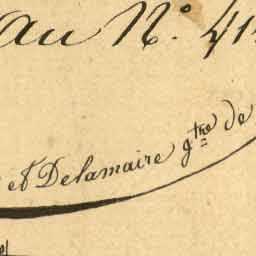 au N° 41
et Delamaire g^tre de